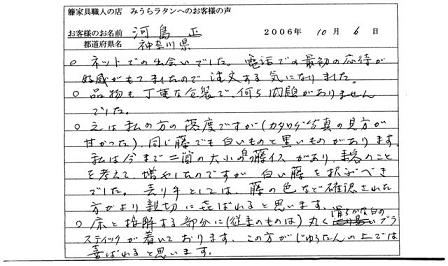 籐家具職人の店 みうらラタンへのお客様の声
お客様のお名前 河島 正 2006年 10月 6日
都道府県名 神奈川県
○ ネットでの出会いでした。電話での最初の応待が
好感がもてましたので注文する気になりました。
○ 品物も丁寧な包装で、何ら問題がありません
でした。
○ 之は私の方の 態度ですが(カタログ写真の見方が
甘かった)、同じ籐でも白いものと黒いものがあります。
私は今まで二箇の大小の籐イスがあり、色のこと
を考えて 増やしたのですが 白い籐を択ぶべき
でした。売り手としては、籐の色など確認された
方がより親切に喜ばれると思います。
○ 床と接触する部分に(従来のものは)丸く滑らかな白の
プラスティックが着いております。この方がじゅうたんの上では
喜ばれると思います。